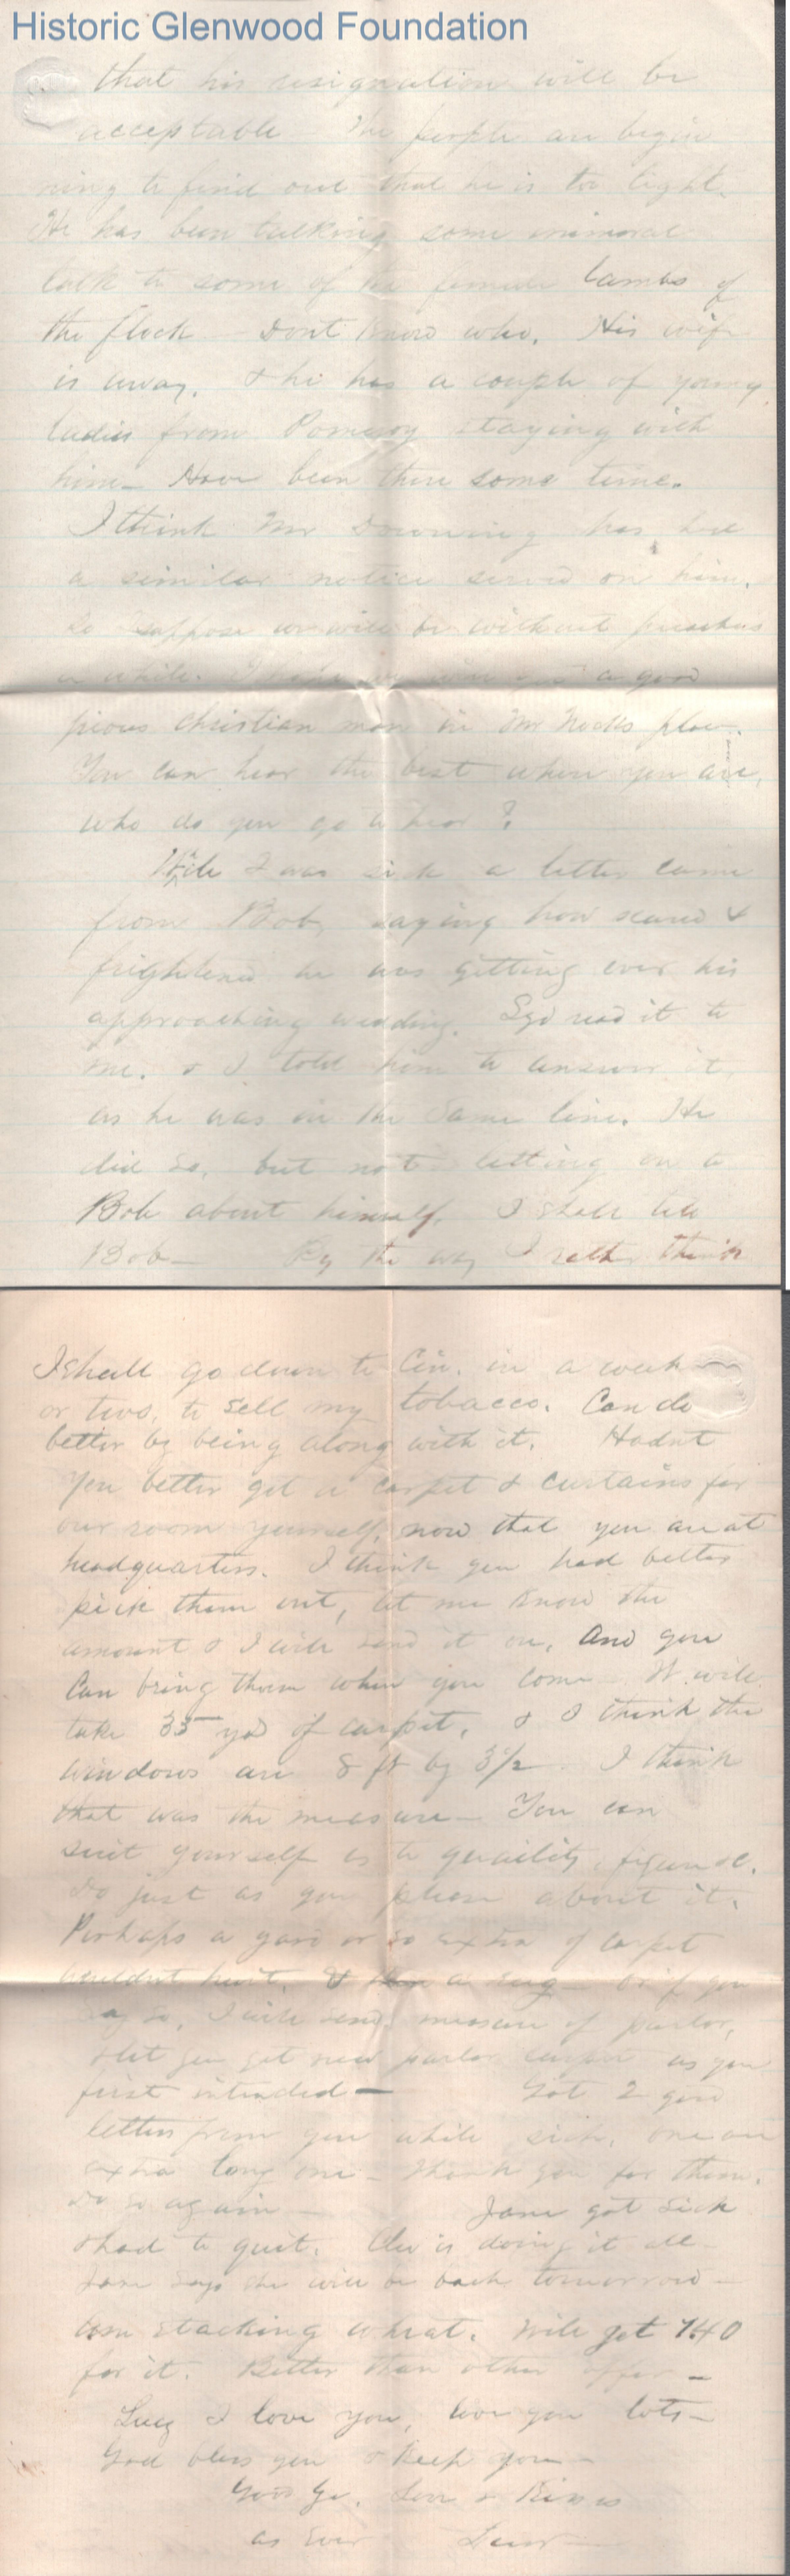 Historic Glenwood Foundation
that his resignation will be
acceptable - The people are begin
ning to find out that he is too light.
He has been talking some immoral
talk to some of the female lambs of
the flock - Dont know who. His wife
is away. & he has a couple of young
ladies from Pomeroy staying with
him - Have been there some time.
I think Mr Downing has had
a similar notice served on him.
So suppose we will be without preachers
a while. I hope we will a good
pious christian man in Mr place.
You can hear the best where you are,
who do you go to hear?
While I was sick a letter came
from Bob, saying how scared &
frightened he was getting over his
approaching wedding. read it to
me. & I told him to answer it,
as he was in the same line. He
did so, but not letting on to
Bob about himself. I shall tell
Bob - By the way I rather think
I shall go down to Cin. in a week
or two, to sell my tobacco. Can do
better by being along with it. Hadnt
you better get a carpet & curtains for
our room yourself, now that you are at
headquarters. I think you had better
pick them out, let me know the
amount & I will send it on, And you
can bring them when you come - It will
take 35 yds of carpet, & I think the
windows are 8 ft by 3½. I think
that was the measure - You can
suit yourself as to quaility, figure &c.
Do just as you please about it.
Perhaps a yard or so extra of carpet
wouldnt hurt, & a rug - or if you
say so, I will send measure of parlor,
& let you get new parlor carpet as you
first intended - Got 2 good
letters from you while sick, one an
extra long one - Thank you for them.
Do so again - Jane got sick
& had to quit. is doing it all -
Jane says she will be back tomorrow -
Am stacking wheat. Will get 1.40
for it. Better than other offer -
Lucy I love you, love you lots -
God bless you & keep you -
Good bye. Love & Kisses
as ever